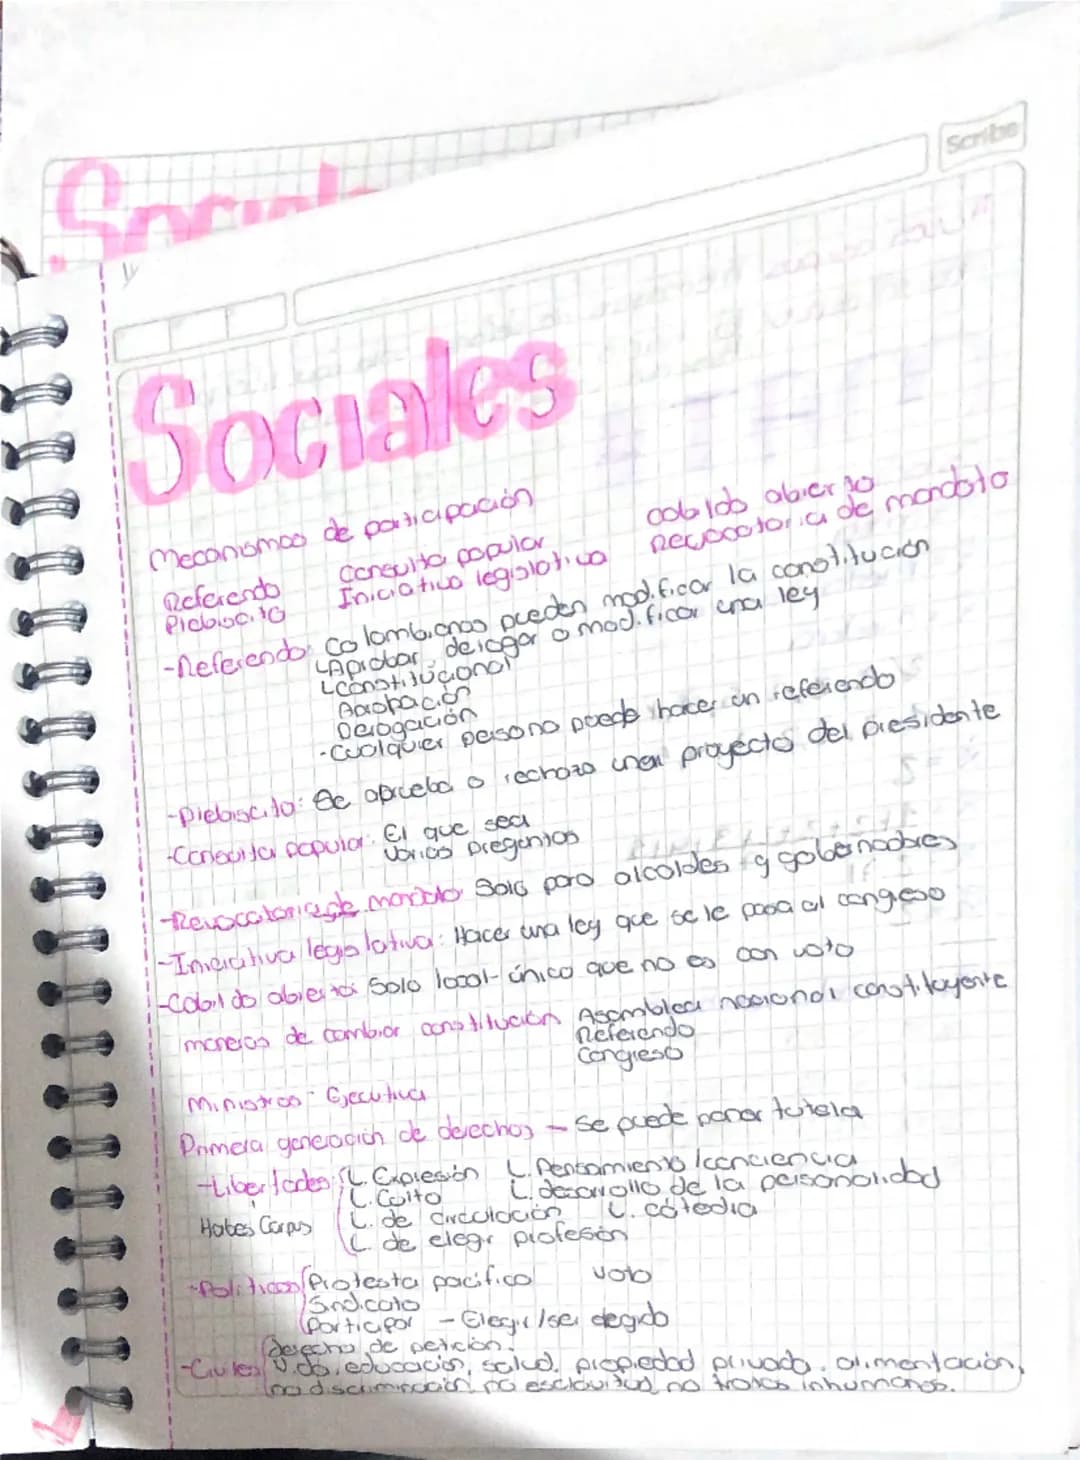 Scribe
Sociales
Mecanismos de participación
Referendo Consulta popular cabildo abierto
Plebiscito Iniciativa legislativa Revocatoria de mandato
-Referendo: Colombianos pueden modificar la constitución
Aprobar, derogar o modificar una ley
Constitucional
Aprobación
Derogación
-Cualquier persona puede hacer un referendo
-Plebiscito: Se aprueba o rechaza proyecto del presidente
-Consulta popular: El que sea
varias preguntas
-Revocatoria de mandato Solo para alcaldes y gobernadores
-Iniciativa legislativa: Hacer una ley que se le pasa al congreso
-Cabildo abierto: Solo local- único que no es con voto
maneras de cambiar constitución Asamblea nacional constituyente
Referendo
Congreso
Ministros - Ejecutiva
Primera generación de derechos - se puede poner tutela
-Libertades: L. Expresión L. Pensamiento/conciencia
L. Culto L. desarrollo de la personalidad
Habes Corpus L. de circulación L. cátedra
L. de elegir profesión
-Políticos Protesta pacífica voto
Sindicato
Participar - Elegir/ser elegido
derecho de petición.
-Civiles Vida, educación, salud, propiedad privada. alimentación,
no discriminación, no esclavitud, no tratos inhumanos.